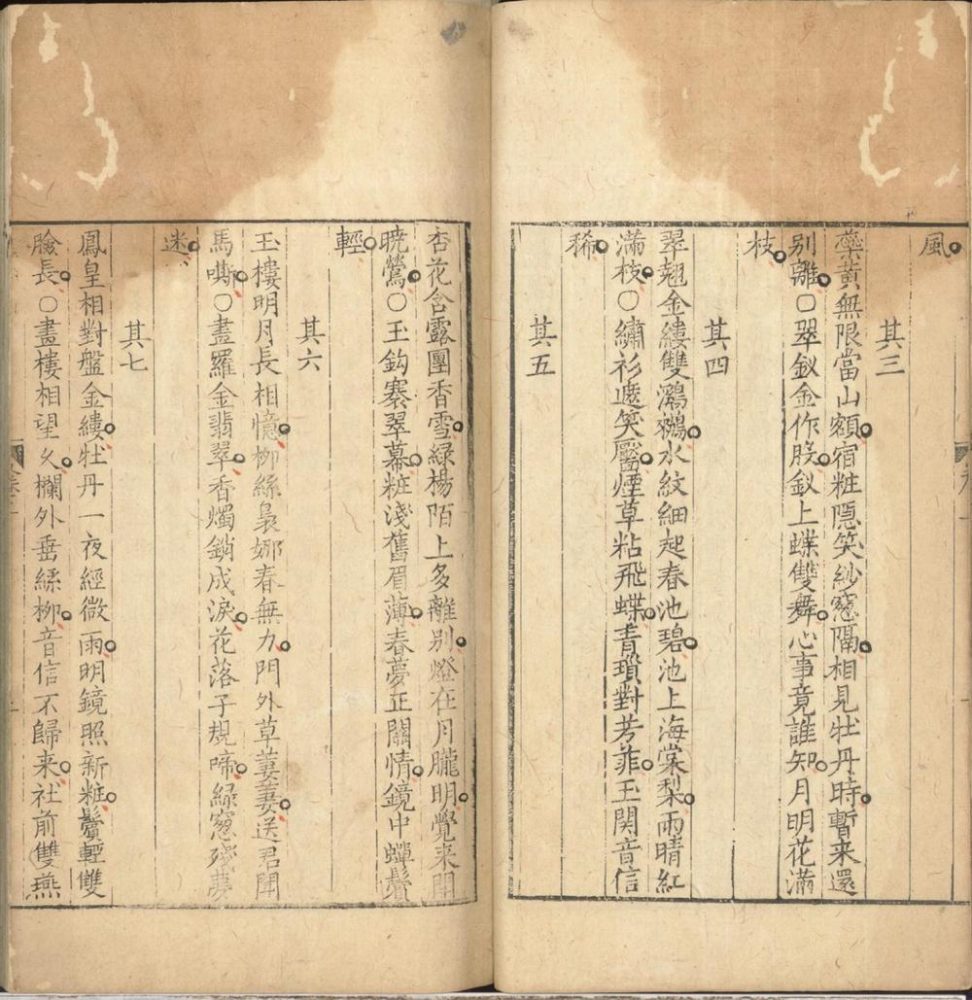 風
其三
蘂黄無限當山額宿粧隠笑紗窓隔相見牡丹時暫来還
别離○翠釵金作股釵上蝶雙舞心事竟誰知月明花滿
枝
其四
翠翹金縷雙鸂鶒水紋細起春池碧池上海棠梨雨晴紅
滿枝○繡衫遮笑靨煙草粘飛蝶青瑣對芳菲玉関音信
稀
其五
杏花含露團香雪緑楊陌上多離别燈在月朧明覺来聞
曉鶯○玉鈎褰翠幕粧淺舊眉薄春夢正關情鏡中蟬鬢
輕
其六
玉樓明月長相憶柳絲裊娜春無力門外草萋萋送君聞
馬嘶○畫羅金翡翠香燭銷成淚花落子規啼緑窓殘夢
迷
其七
鳳皇相對盤金縷牡丹一夜經微雨明鏡照新粧鬢輕雙
臉長○畫樓相望久欄外垂絲柳音信不歸来社前雙燕